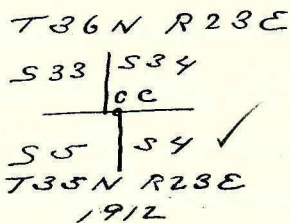 T36N R23E
S33 S34
CC
S5 S4
T35N R23E
1912